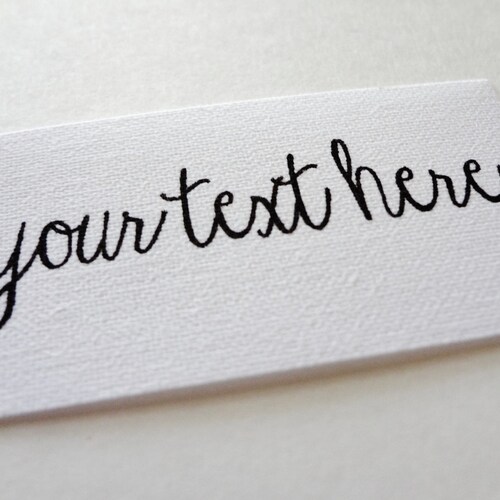 your text here